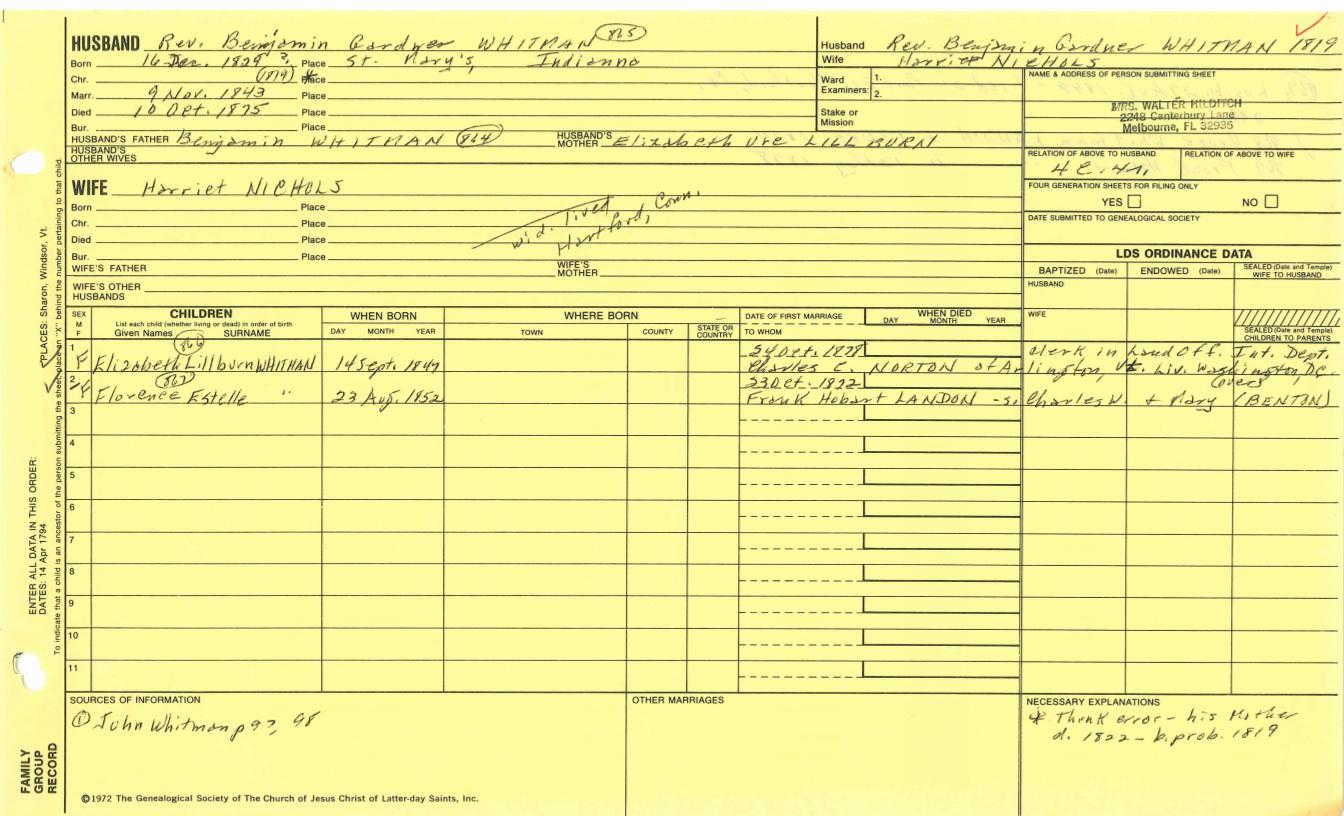 HUSBAND Rev. Benjamin Gardner WHITMAN 865
Born 16 Dec. 1829 ? Place St. Mary's, Indianna
Chr. (1819) * Place
Marr. 9 Nov. 1843 Place
Died 10 Oct. 1875 Place
Bur. Place
HUSBAND'S FATHER Benjamin WHITMAN 864 HUSBAND'S MOTHER Elizabeth Ure LILLBURN
HUSBAND'S OTHER WIVES
Husband Rev. Benjamin Gardner WHITMAN 1819
Wife Harriet NICHOLS
Ward Examiners: 1. 2.
Stake or Mission
NAME & ADDRESS OF PERSON SUBMITTING SHEET
MRS. WALTER HILDITCH
2248 Canterbury Lane
Melbourne, FL 32935
RELATION OF ABOVE TO HUSBAND RELATION OF ABOVE TO WIFE
FOUR GENERATION SHEETS FOR FILING ONLY
YES NO
DATE SUBMITTED TO GENEALOGICAL SOCIETY
WIFE Harriet NICHOLS
Born Place
Chr. Place
Died Place
Bur. Place
wid. lived
Hartford, Conn.
WIFE'S FATHER WIFE'S MOTHER
WIFE'S OTHER HUSBANDS
LDS ORDINANCE DATA
BAPTIZED (Date) ENDOWED (Date) SEALED (Date and Temple) WIFE TO HUSBAND
HUSBAND
WIFE
SEALED (Date and Temple) CHILDREN TO PARENTS
SEX M F
CHILDREN
List each child (whether living or dead) in order of birth
Given Names SURNAME
WHEN BORN
DAY MONTH YEAR
WHERE BORN
TOWN COUNTY STATE OR COUNTRY
DATE OF FIRST MARRIAGE
TO WHOM
WHEN DIED
DAY MONTH YEAR
866
1 24 Oct. 1878 clerk in Land Off. Int. Dept.
F Elizabeth Lillburn WHITMAN 14 Sept. 1849 Charles C. NORTON of Arlington, Vt. Liv. Washington, DC.
867
2 23 Oct. 1832 (over)
F Florence Estelle " 23 Aug. 1852 Frank Hobart LANDON - s. Charles W. + Mary (BENTON)
3
4
5
6
7
8
9
10
11
SOURCES OF INFORMATION
① John Whitman p 97, 98
OTHER MARRIAGES
NECESSARY EXPLANATIONS
* Think error - his Mother
d. 1822 - b. prob. 1819
©1972 The Genealogical Society of The Church of Jesus Christ of Latter-day Saints, Inc.
FAMILY
GROUP
RECORD
ENTER ALL DATA IN THIS ORDER:
DATES: 14 Apr 1794
PLACES: Sharon, Windsor, Vt.
To indicate that a child is an ancestor of the person submitting the sheet, place an "X" behind the number pertaining to that child.